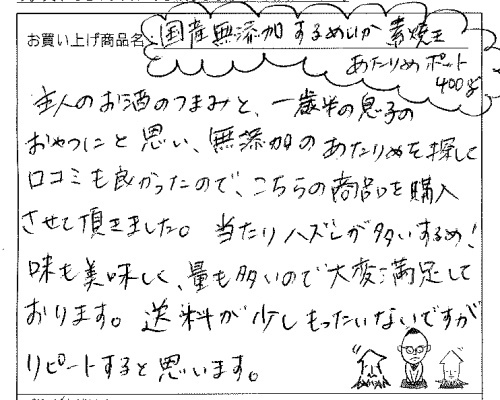 お買い上げ商品名: 国産無添加 するめいか 素焼王
あたりめ ポット
400g
主人のお酒のつまみと、一歳半の息子の
おやつにと思い、無添加のあたりめを探して
口コミも良かったので、こちらの商品を購入
させて頂きました。当たりハズレが多いするめ!
味も美味しく、量も多いので大変満足して
おります。送料が少しもったいないですが
リピートすると思います。